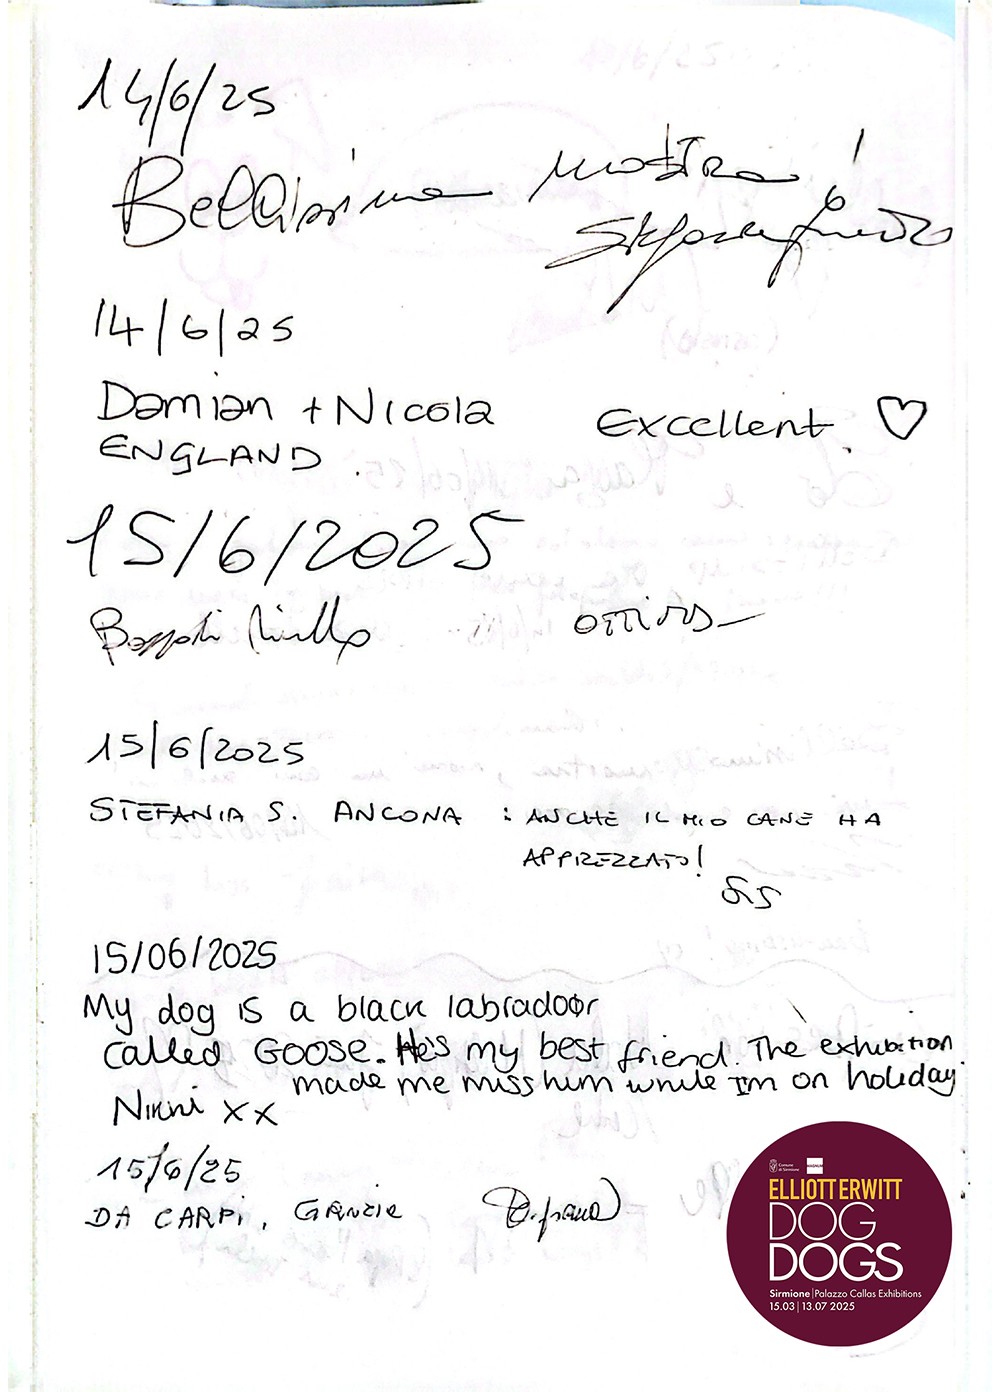 14/6/25
Bellissima mostra!
14/6/25
Damian + Nicola
ENGLAND.
Excellent. ♡
15/6/2025
OTTIMO
15/6/2025
STEFANIA S. ANCONA : ANCHE IL MIO CANE HA
APPREZZATO!
SS
15/06/2025
My dog is a black labradoor
called GOOSE. He's my best friend. The exhibition
made me miss him while I'm on holiday
Nikki xx
15/6/25
DA CARPI, GRAZIE
Comune
di Sirmione
MAGNUM
ELLIOTT ERWITT
DOG
DOGS
Sirmione | Palazzo Callas Exhibitions
15.03 | 13.07 2025